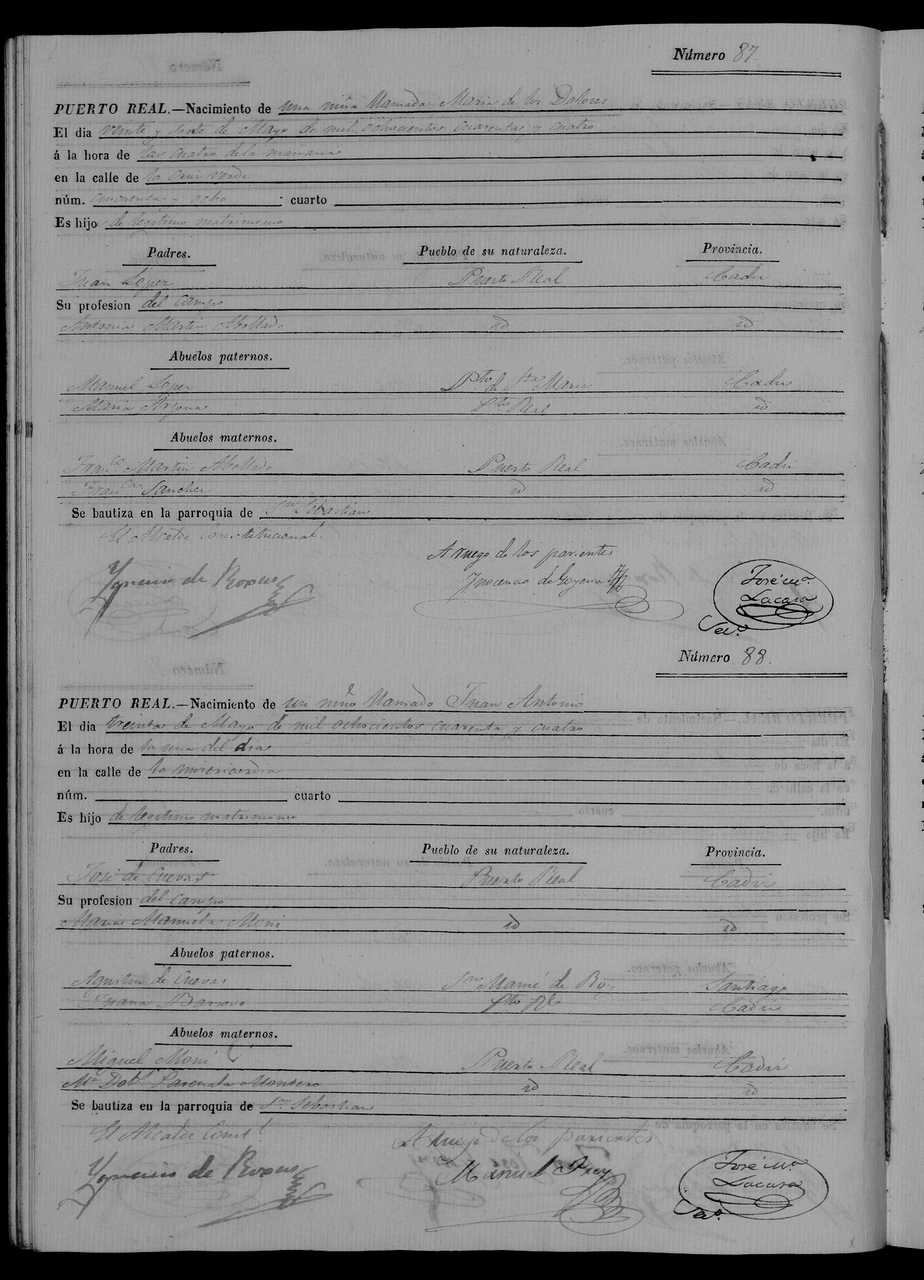 Número 87.
PUERTO REAL.—Nacimiento de una niña llamada Maria de los Dolores
El dia veinte y siete de Mayo de mil ochocientos cuarenta y cuatro
á la hora de las cuatro de la mañana
en la calle de la Cruz verde
núm. cincuenta y ocho cuarto
Es hijo de legitimo matrimonio
Padres. Pueblo de su naturaleza. Provincia.
Juan Lopez Puerto Real Cadiz
Su profesion del campo
Antonia Martin Abollado id id
Abuelos paternos.
Manuel Lopez Pto de Sta Maria Cadiz
Maria Arjona Pto Real id
Abuelos maternos.
Franco Martin Abollado Puerto Real Cadiz
Franca Sanchez id id
Se bautiza en la parroquia de Sn Sebastian
El Alcalde Constitucional
A ruego de los parientes
Ygnacio de
Inocencio de
José Ma.
Lacasa
Seco.
Número 88.
PUERTO REAL.—Nacimiento de un niño llamado Juan Antonio
El dia treinta de Mayo de mil ochocientos cuarenta y cuatro
á la hora de la una del dia
en la calle de la misericordia
núm. cuarto
Es hijo de legitimo matrimonio
Padres. Pueblo de su naturaleza. Provincia.
José de Cuevas Puerto Real Cadiz
Su profesion del campo
Maria Manuela Moni id id
Abuelos paternos.
Agustin de Cuevas Sn Mamé de Santiago
Barroso Pto Rl Cadiz
Abuelos maternos.
Miguel Moni Puerto Real Cadiz
Ma Dols Montero id id
Se bautiza en la parroquia de Sn Sebastian
El Alcalde Constl
A ruego de los parientes
Ygnacio de
Manuel
José Ma.
Lacasa
Seco.